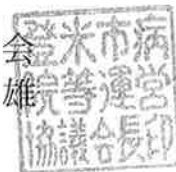 会
雄
登米市病
院等運営
協議会長印